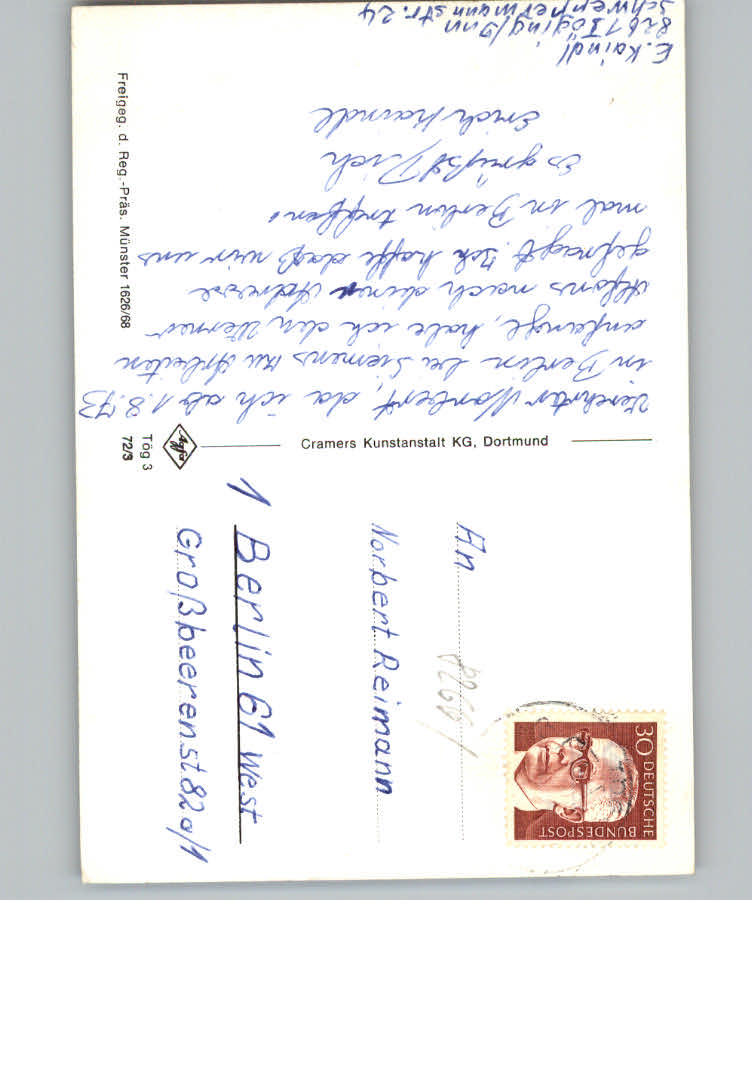 E. Kaindl
8261 Töging/Inn
Schwerppermannstr. 24
Verehrter Norbert, da ich ab 1.8.73
in Berlin bei Siemens zu Arbeiten
anfange, habe ich den Werner
Alfons nach deiner Adresse
gefragt. Ich hoffe daß wir uns
mal in Berlin treffen!
Es grüßt Dich
Erich Kaindl
Freigeg. d. Reg.-Präs. Münster 1626/68
Cramers Kunstanstalt KG, Dortmund
Agfa
Tög 3
72/3
An
Norbert Reimann
1 Berlin 61 West
Großbeerenst 82a/1
30 DEUTSCHE
BUNDESPOST